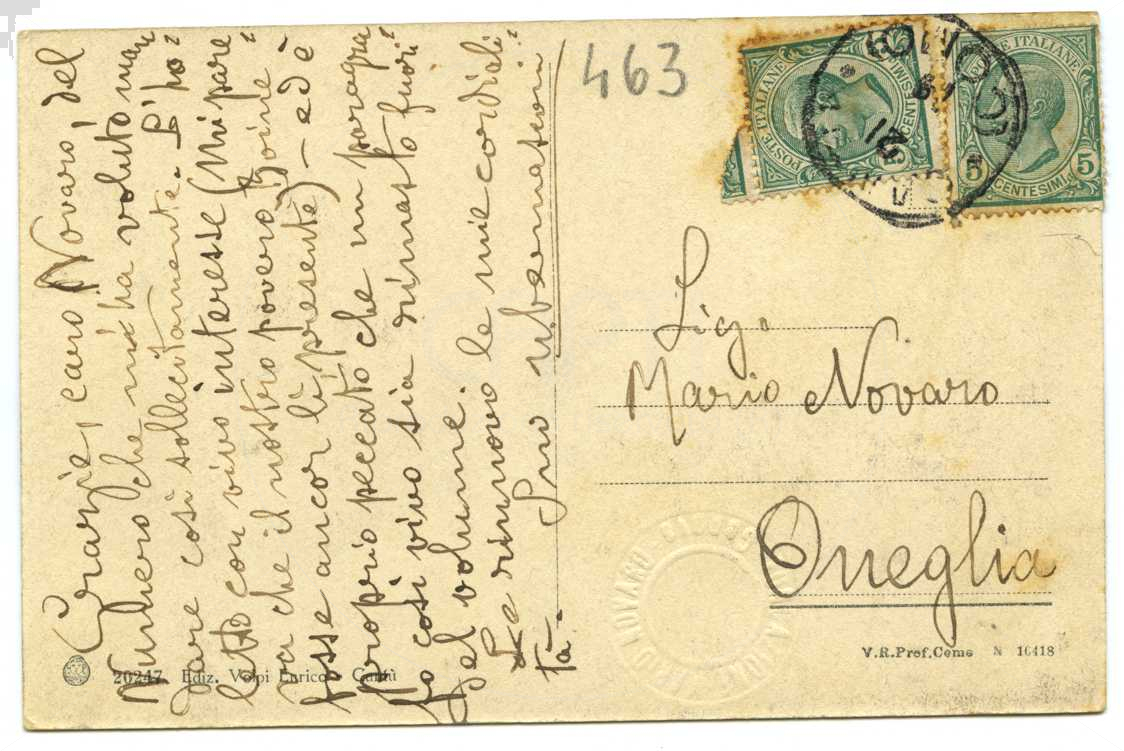 Grazie, caro Novaro, del
Numero che mi ha voluto man
dare così sollecitamente. L'ho
letto con vivo interesse (Mi pare
va che il nostro povero Boine
fosse ancor lì presente) - ed è
proprio peccato che un paragra
fo così vivo sia rimasto fuori
del volume.
Le rinnovo le mie cordiali
Suo urbanamationi
tà-
463
POSTE ITALIANE
5 CENTESIMI 5
POSTE ITALIANE
5 CENTESIMI 5
COMO
Sig.
Mario Novaro
Oneglia
NOVARO
20247. Ediz. Volpi Enrico - Cantù
V.R.Pref.Como N 10418